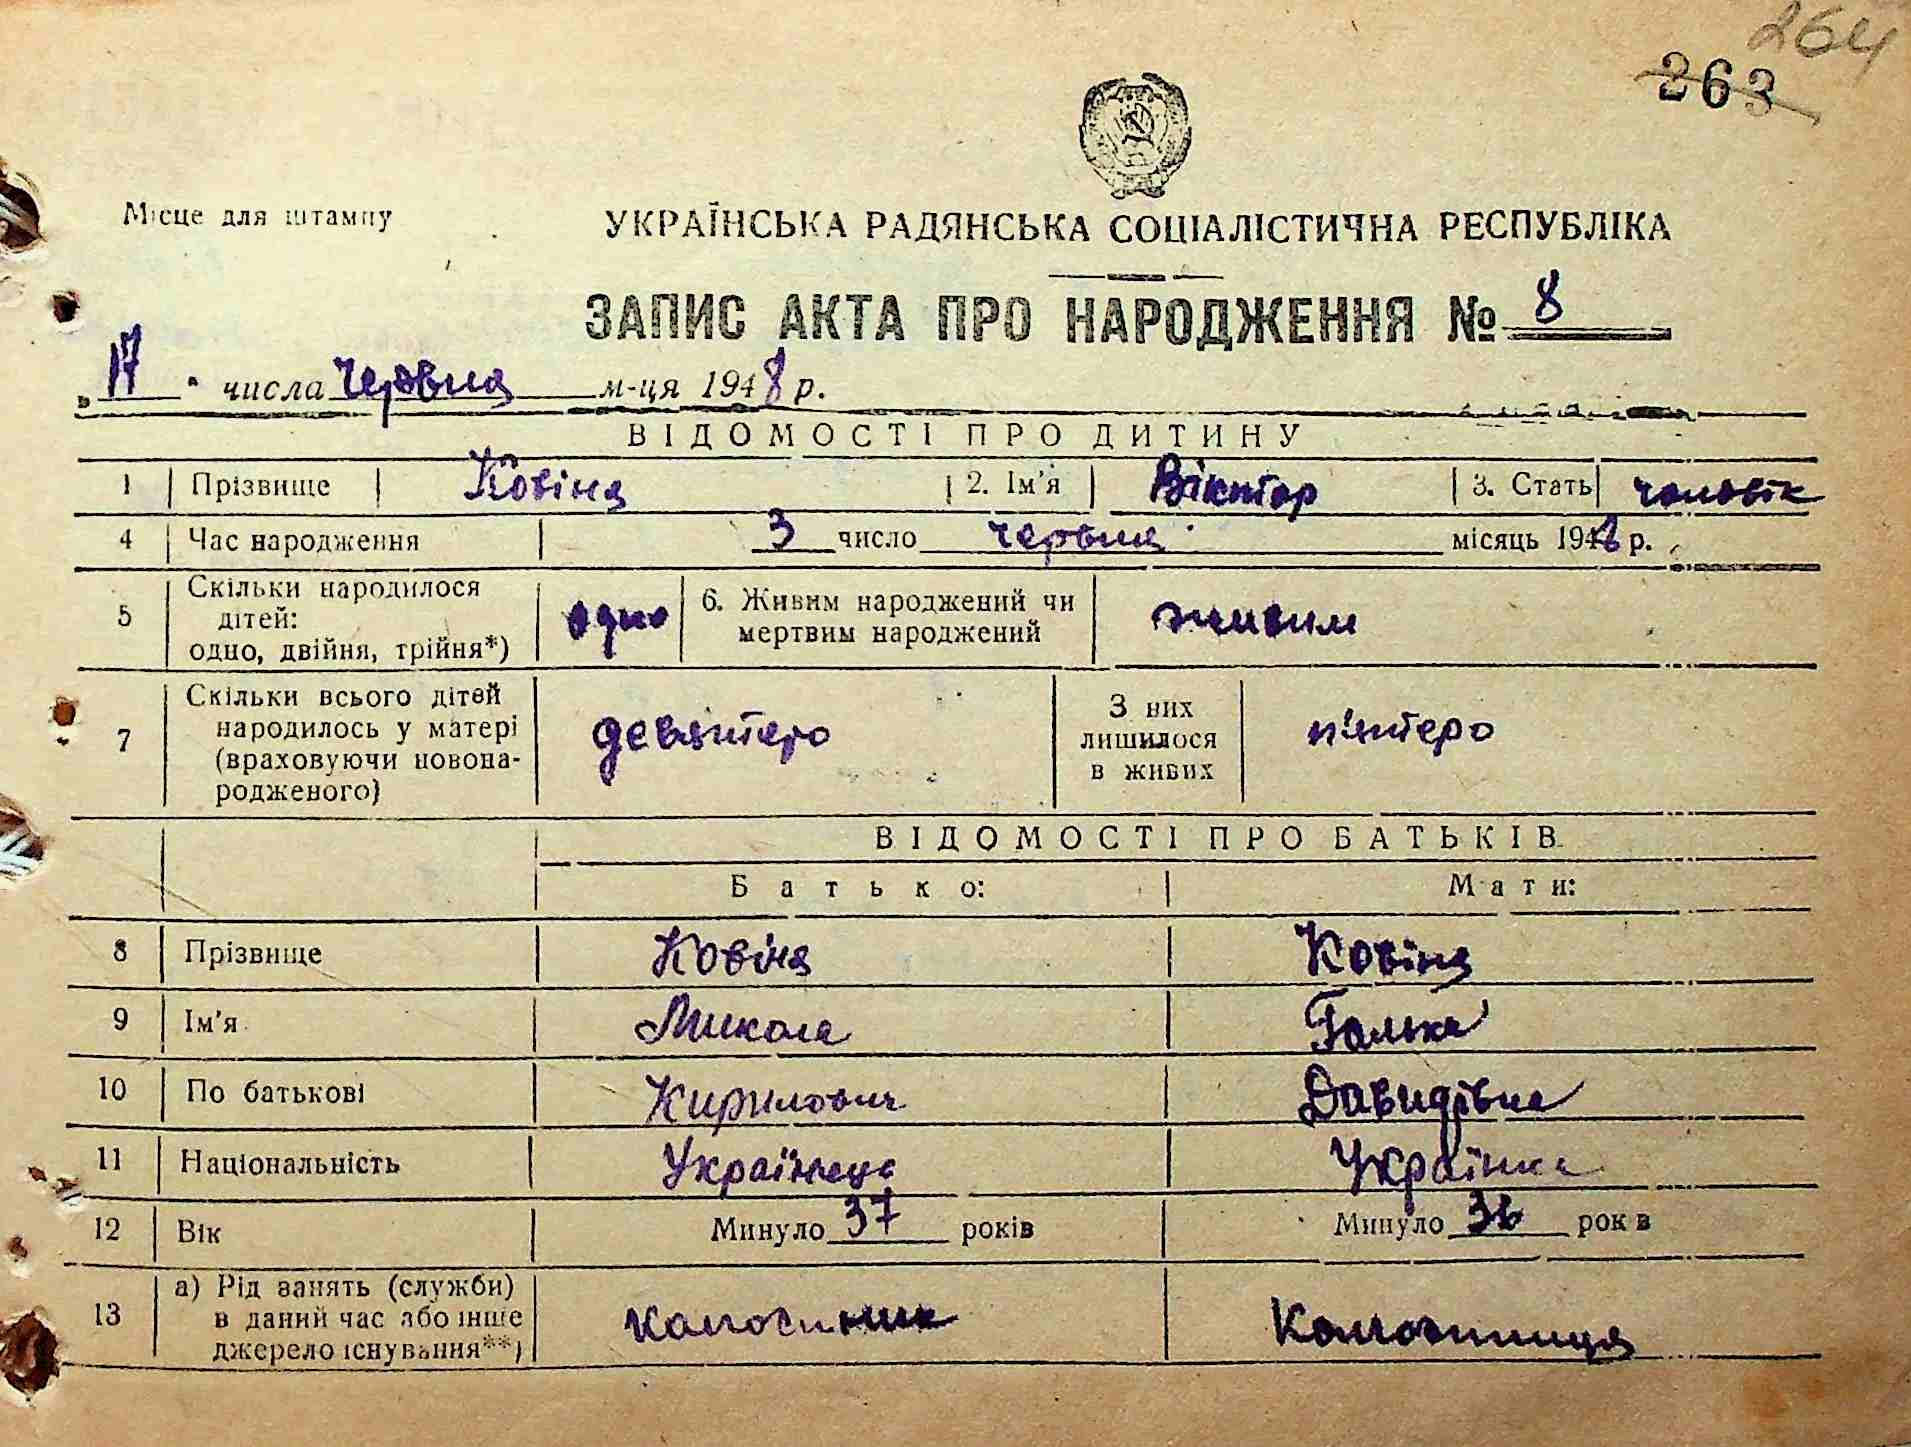 264
263
Місце для штампу
УКРАЇНСЬКА РАДЯНСЬКА СОЦІАЛІСТИЧНА РЕСПУБЛІКА
ЗАПИС АКТА ПРО НАРОДЖЕННЯ № 8
"17" числа Червня м-ця 1948 р.
ВІДОМОСТІ ПРО ДИТИНУ
1 Прізвище Ковіня 2. Ім'я Віктор 3. Стать чоловік
4 Час народження 3 число червня місяць 1948 р.
5 Скільки народилося дітей: одно, двійня, трійня*) одно 6. Живим народжений чи мертвим народжений живим
7 Скільки всього дітей народилось у матері (враховуючи новонародженого) девятеро З них лишилося в живих п'ятеро
ВІДОМОСТІ ПРО БАТЬКІВ
Батько: Мати:
8 Прізвище Ковіня Ковіня
9 Ім'я Микола Галька
10 По батькові Кирилович Давидівна
11 Національність Українець Українка
12 Вік Минуло 37 років Минуло 36 рок в
13 а) Рід занять (служби) в даний час або інше джерело існування**) колгоспник Колгоспниця